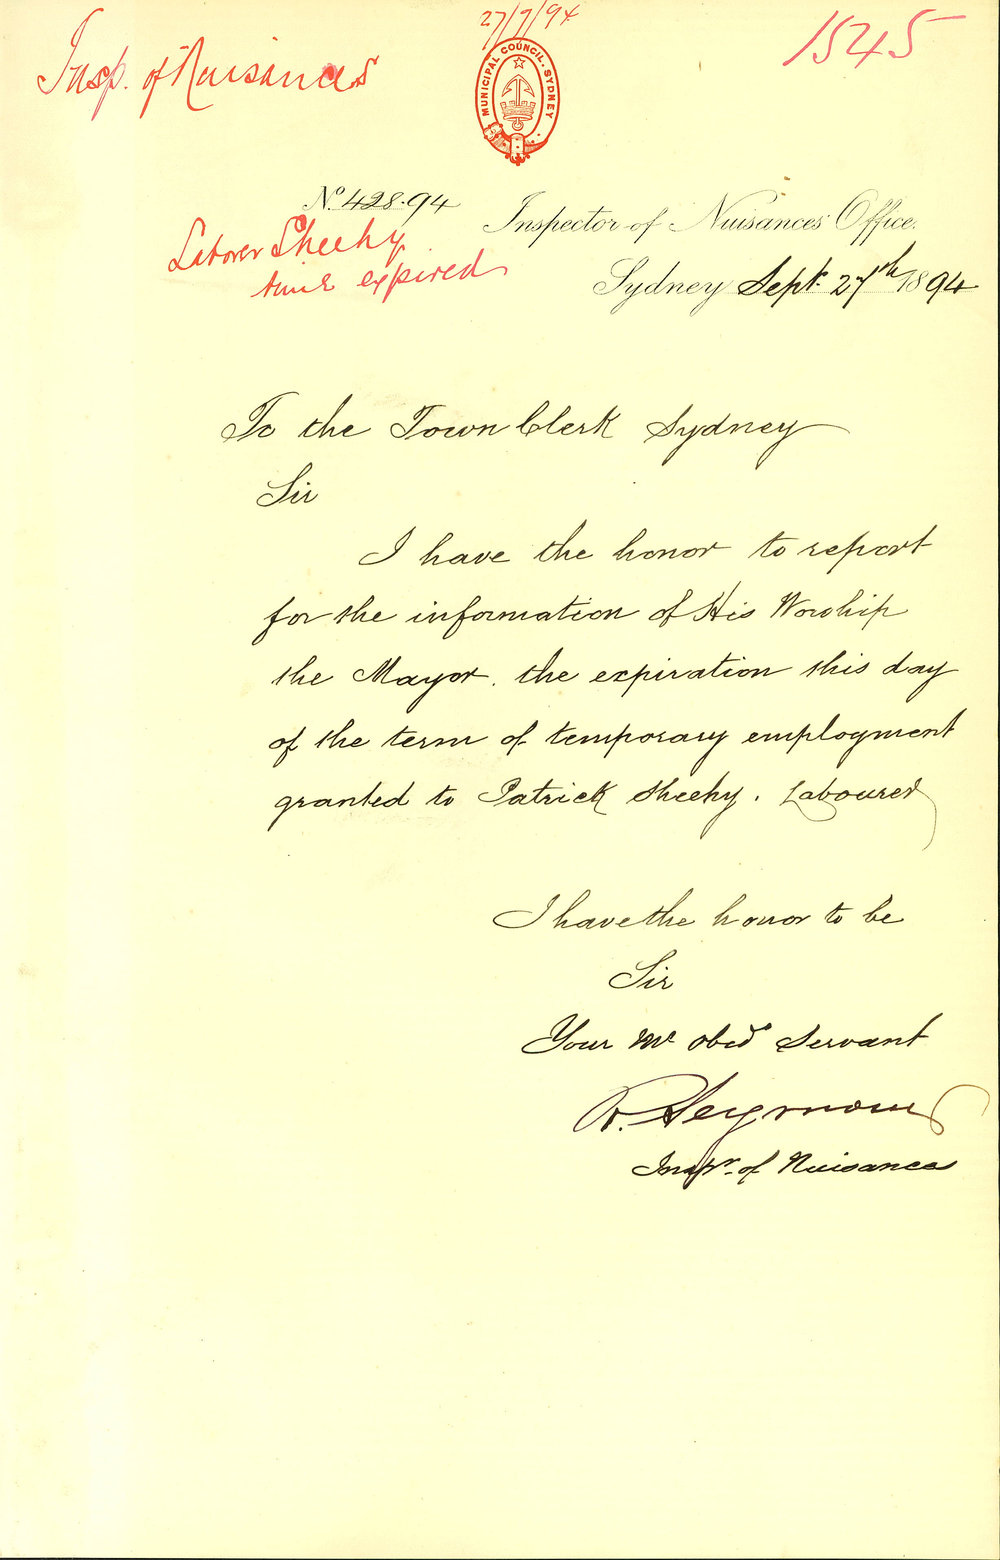 27/9/94
1545
Insp. of Nuisances
MUNICIPAL COUNCIL. SYDNEY
No. 428.94
Inspector of Nuisances' Office.
Laborer Sheehy
time expired
Sydney Sept. 27th 1894
To the Town Clerk Sydney
Sir
I have the honor to report
for the information of His Worship
the Mayor. the expiration this day
of the term of temporary employment
granted to Patrick Sheehy. Labourer
I have the honor to be
Sir
Your Mt. Obedt. Servant
R. Seymour
Inspr. of Nuisances